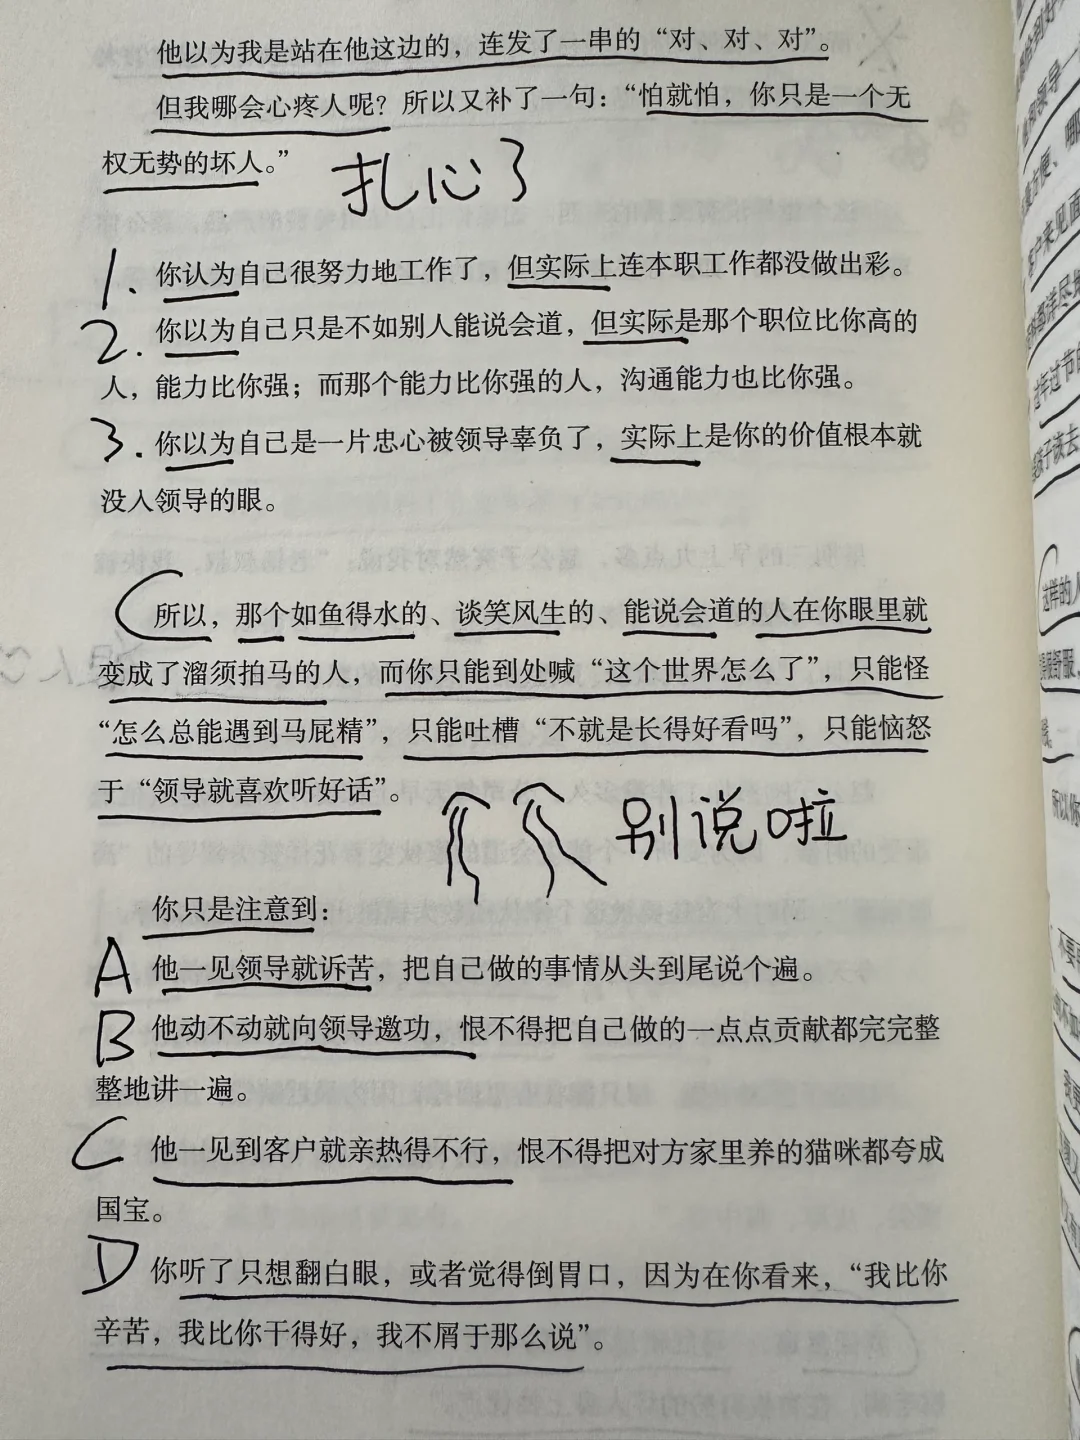 他以为我是站在他这边的，连发了一串的“对、对、对”。
但我哪会心疼人呢？所以又补了一句：“怕就怕，你只是一个无
权无势的坏人。”
扎心了
1. 你认为自己很努力地工作了，但实际上连本职工作都没做出彩。
2. 你以为自己只是不如别人能说会道，但实际是那个职位比你高的
人，能力比你强；而那个能力比你强的人，沟通能力也比你强。
3. 你以为自己是一片忠心被领导辜负了，实际上是你的价值根本就
没入领导的眼。
所以，那个如鱼得水的、谈笑风生的、能说会道的人在你眼里就
变成了溜须拍马的人，而你只能到处喊“这个世界怎么了”，只能怪
“怎么总能遇到马屁精”，只能吐槽“不就是长得好看吗”，只能恼怒
于“领导就喜欢听好话”。
别说啦
你只是注意到：
A 他一见领导就诉苦，把自己做的事情从头到尾说个遍。
B 他动不动就向领导邀功，恨不得把自己做的一点点贡献都完完整
整地讲一遍。
C 他一见到客户就亲热得不行，恨不得把对方家里养的猫咪都夸成
国宝。
D 你听了只想翻白眼，或者觉得倒胃口，因为在你看来，“我比你
辛苦，我比你干得好，我不屑于那么说”。